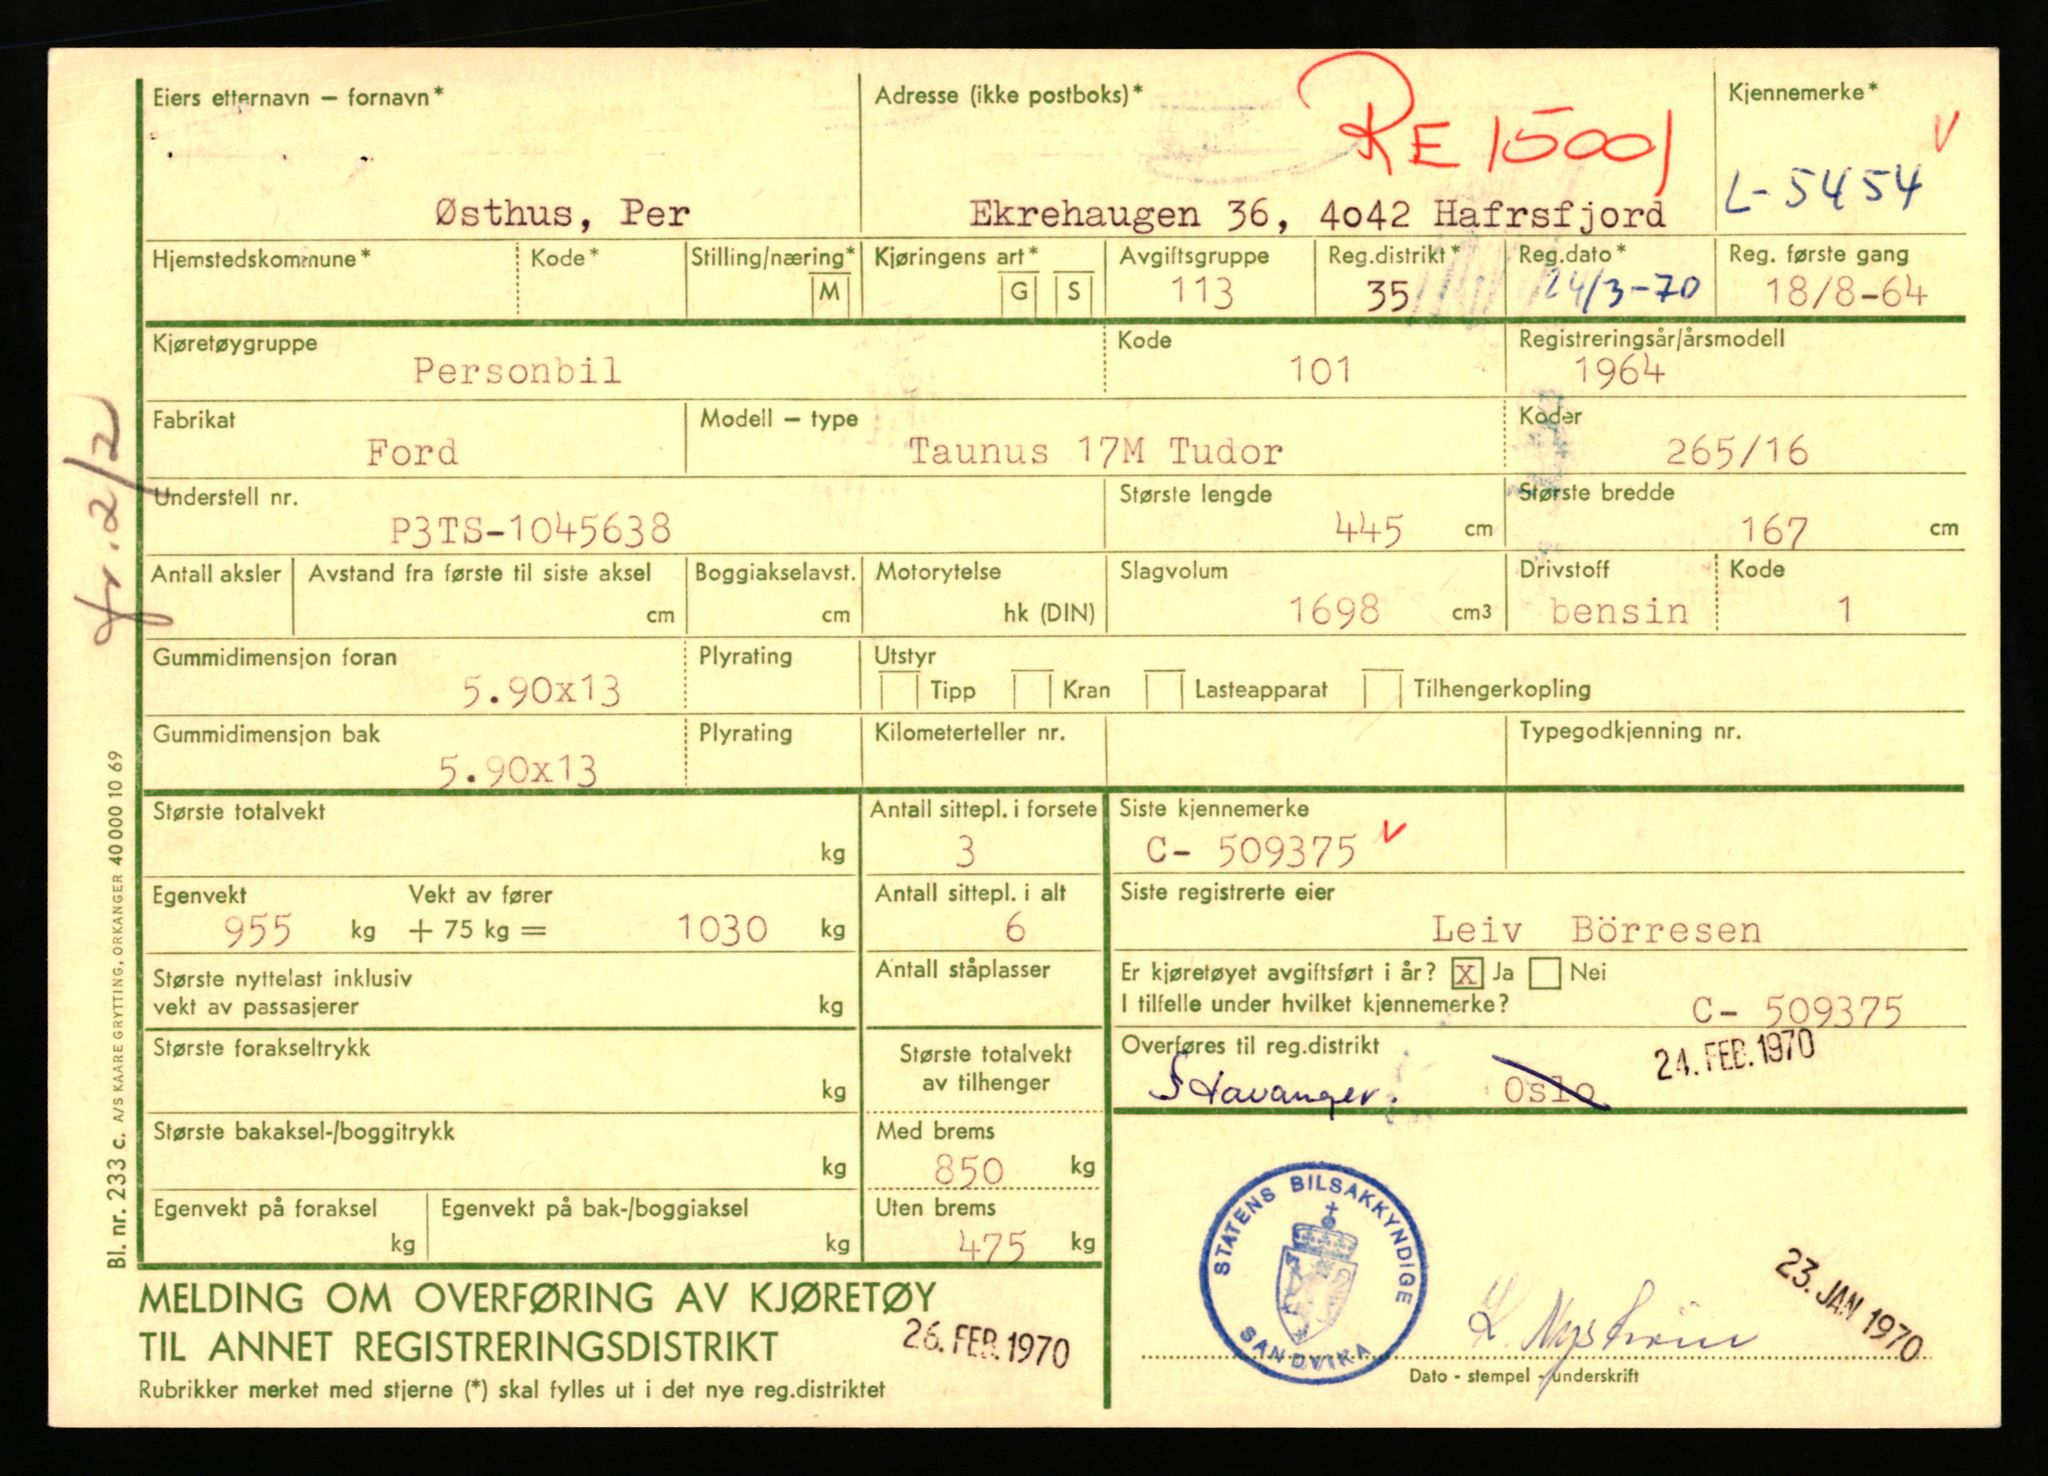 Eiers etternavn – fornavn*
Adresse (ikke postboks)*
RE 15001
Kjennemerke*
V
Østhus, Per
Ekrehaugen 36, 4042 Hafrsfjord
L-5454
Hjemstedskommune*
Kode*
Stilling/næring*
M
Kjøringens art*
G
S
Avgiftsgruppe
113
Reg.distrikt*
35
Reg.dato*
24/3-70
Reg. første gang
18/8-64
Kjøretøygruppe
Personbil
Kode
101
Registreringsår/årsmodell
1964
Fabrikat
Ford
Modell – type
Taunus 17M Tudor
Koder
265/16
Understell nr.
P3TS-1045638
Største lengde
445 cm
Største bredde
167 cm
Antall aksler
Avstand fra første til siste aksel
cm
Boggiakselavst.
cm
Motorytelse
hk (DIN)
Slagvolum
1698 cm3
Drivstoff
bensin
Kode
1
Gummidimensjon foran
5.90x13
Plyrating
Utstyr
Tipp
Kran
Lasteapparat
Tilhengerkopling
Gummidimensjon bak
5.90x13
Plyrating
Kilometerteller nr.
Typegodkjenning nr.
Største totalvekt
kg
Antall sittepl. i forsete
3
Siste kjennemerke
C- 509375 V
Egenvekt
955 kg
Vekt av fører
+ 75 kg = 1030 kg
Antall sittepl. i alt
6
Siste registrerte eier
Leiv Börresen
Største nyttelast inklusiv
vekt av passasjerer
kg
Antall ståplasser
Er kjøretøyet avgiftsført i år? X Ja Nei
I tilfelle under hvilket kjennemerke?
C- 509375
Største forakseltrykk
kg
Største totalvekt
av tilhenger
Overføres til reg.distrikt
24. FEB. 1970
Stavanger. Oslo
Største bakaksel-/boggitrykk
kg
Med brems
850 kg
Egenvekt på foraksel
kg
Egenvekt på bak-/boggiaksel
kg
Uten brems
475 kg
STATENS BILSAKKYNDIGE
SANDVIKA
23. JAN 1970
K. Nystrøm
Dato - stempel - underskrift
MELDING OM OVERFØRING AV KJØRETØY
TIL ANNET REGISTRERINGSDISTRIKT
26. FEB. 1970
Rubrikker merket med stjerne (*) skal fylles ut i det nye reg.distriktet
Bl. nr. 233 c. A/S KAARE GRYTTING, ORKANGER 40 000 10 69